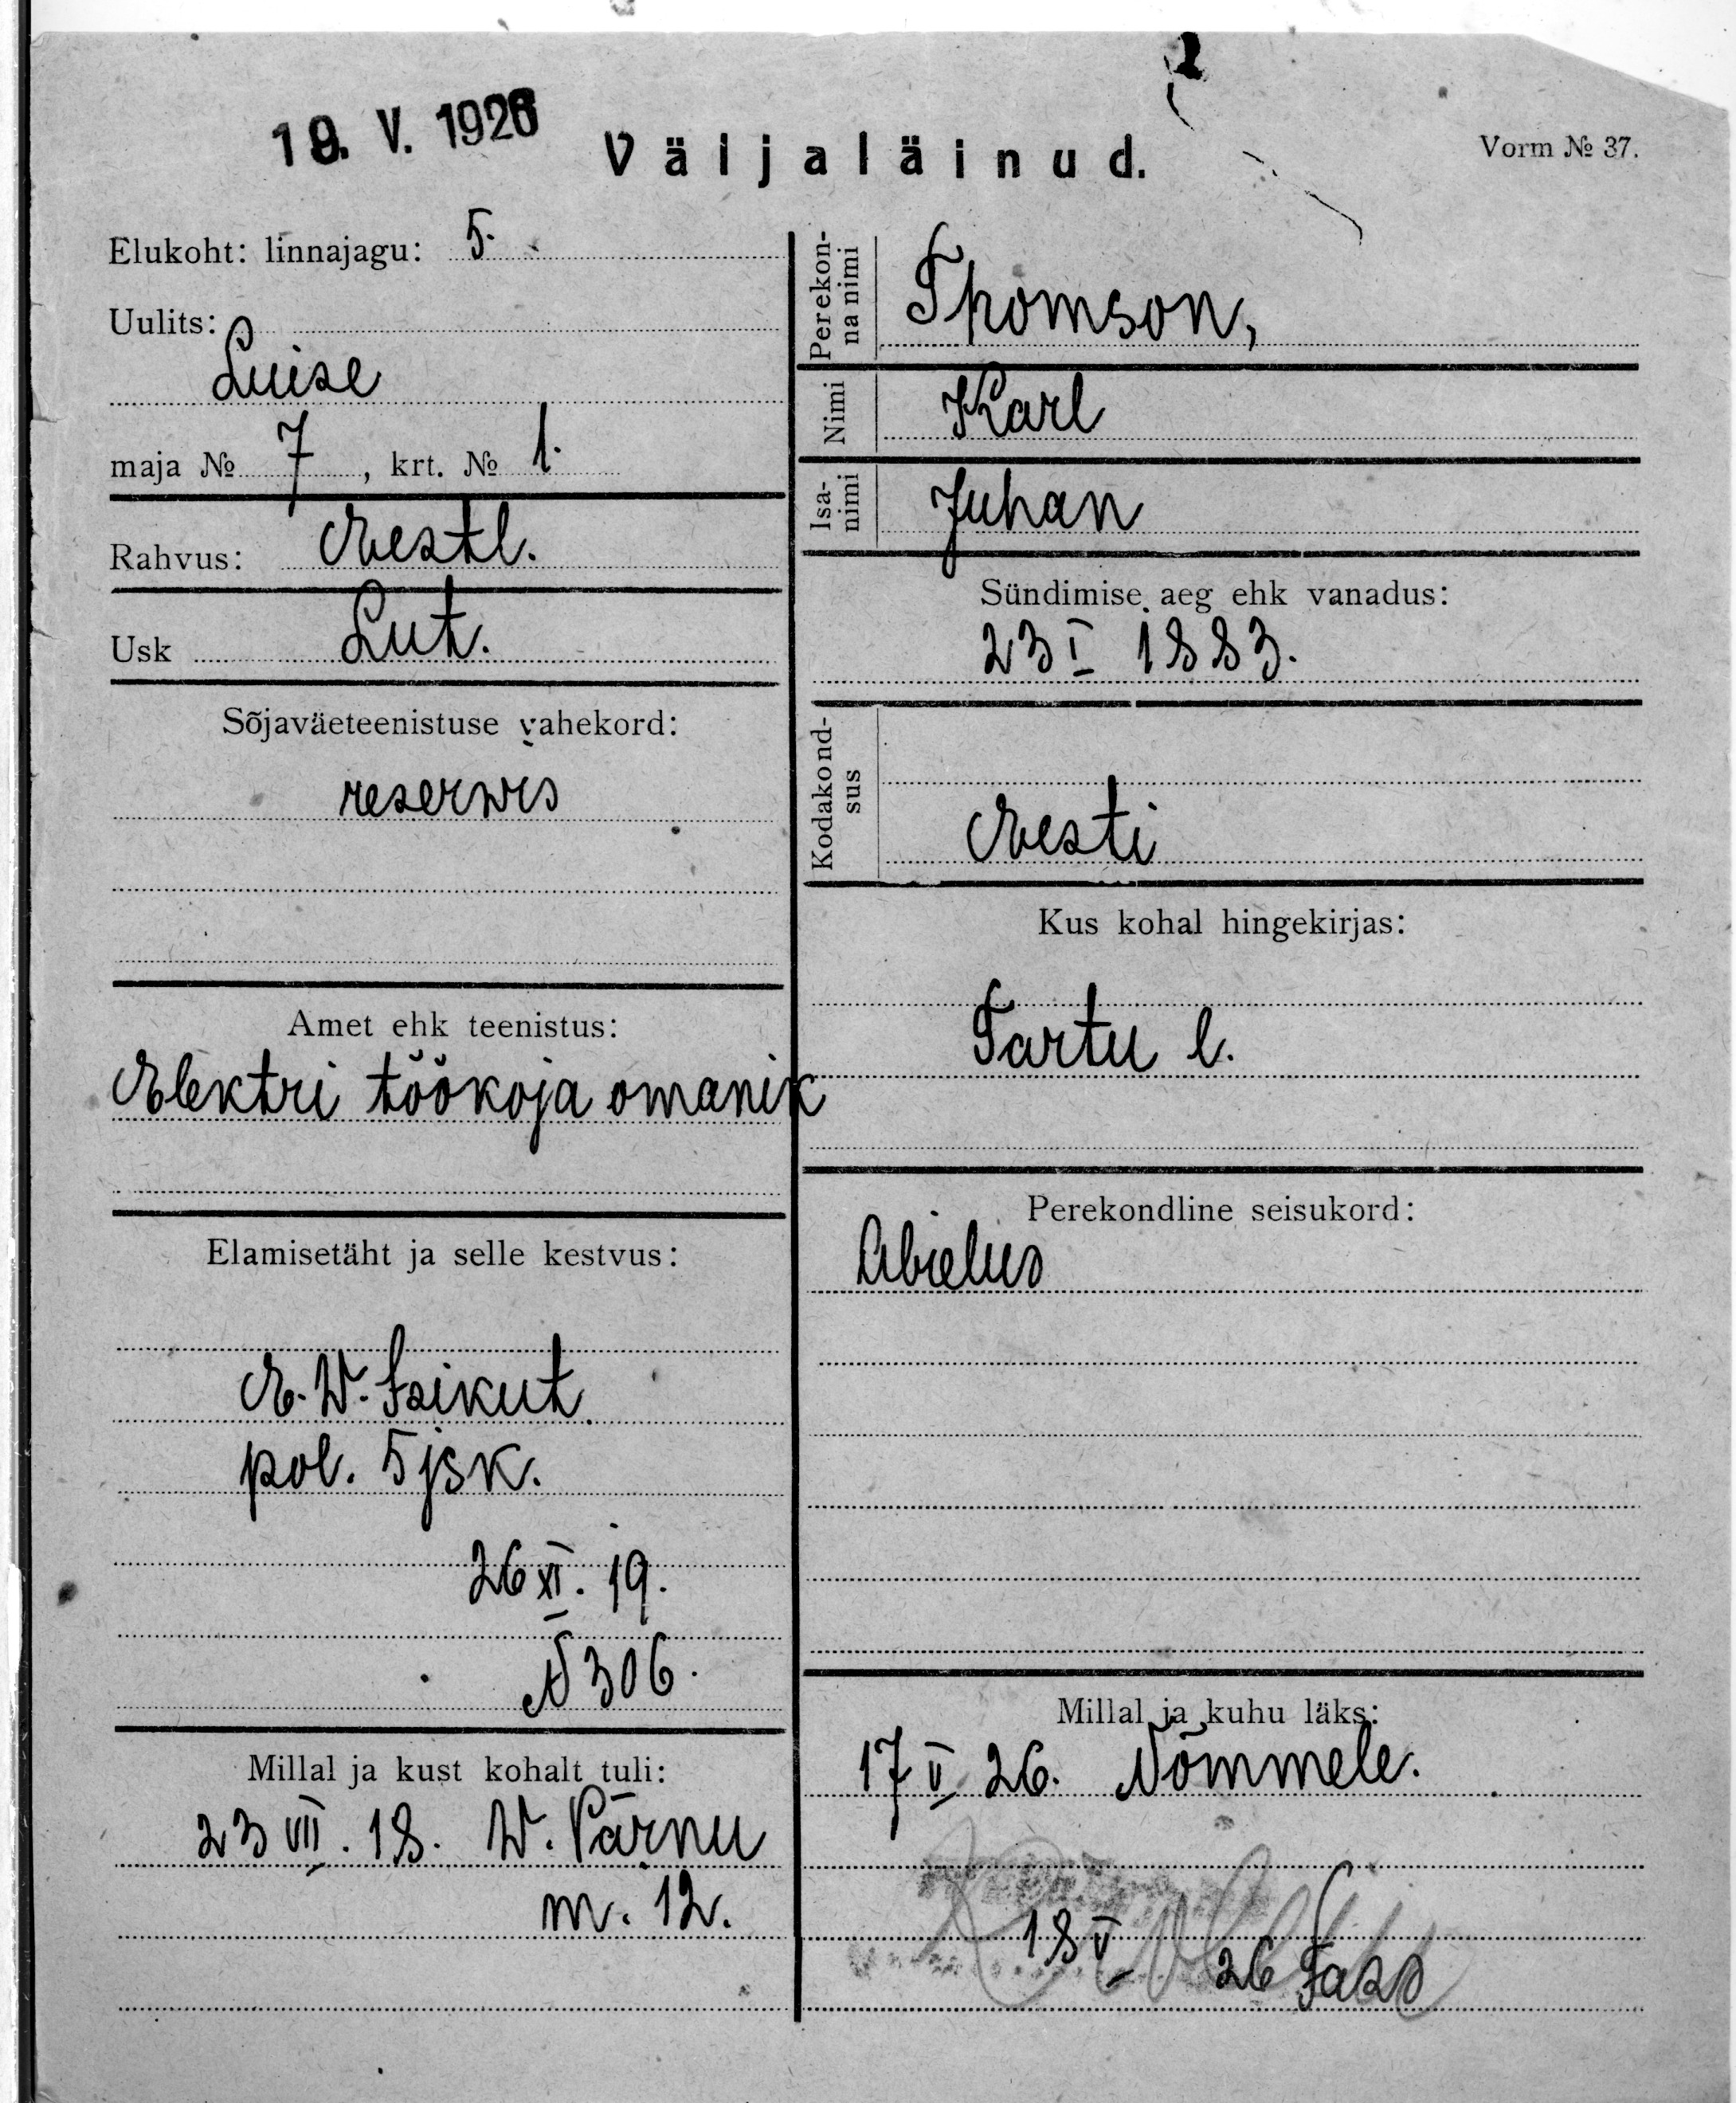 19. V. 1926
Väljaläinud.
Vorm № 37.
Elukoht: linnajagu: 5.
Uulits:
Luise
maja № 7, krt. № 1.
Rahvus: Eestl.
Usk Lut.
Sõjaväeteenistuse vahekord:
reserwis
Amet ehk teenistus:
Elektri töökoja omanik
Elamisetäht ja selle kestvus:
E. W. Isikut.
pol. 5 jsk.
26 XI. 19.
N 306.
Millal ja kust kohalt tuli:
23 VII. 18. W. Pärnu
m. 12.
Perekon-
na nimi
Thomson,
Nimi Karl
Isa-
nimi
Juhan
Sündimise aeg ehk vanadus:
23 I 1883.
Kodakond-
sus
Eesti
Kus kohal hingekirjas:
Tartu l.
Perekondline seisukord:
Abielus
Millal ja kuhu läks:
17 V 26. Nõmmele.
18 V 26